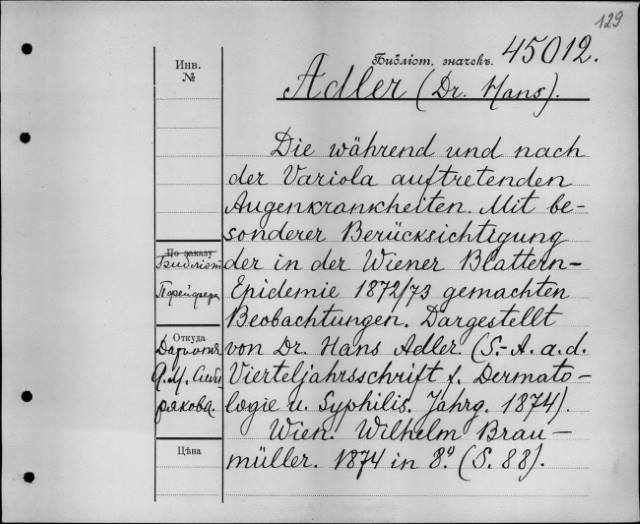 129
Инв. №
Библіот. значекъ. 45012.
Adler (Dr. Hans).
Die während und nach
der Variola auftretenden
Augenkrankheiten. Mit be-
sonderer Berücksichtigung
der in der Wiener Blattern-
Epidemie 1872/73 gemachten
Beobachtungen. Dargestellt
von Dr. Hans Adler. (S.-A. a. d.
Vierteljahrsschrift f. Dermato-
logie u. Syphilis. Jahrg. 1874).
Wien. Wilhelm Brau-
müller. 1874 in 8º. (S. 88).
По заказу
Откуда
Сиби-
рякова.
Цѣна